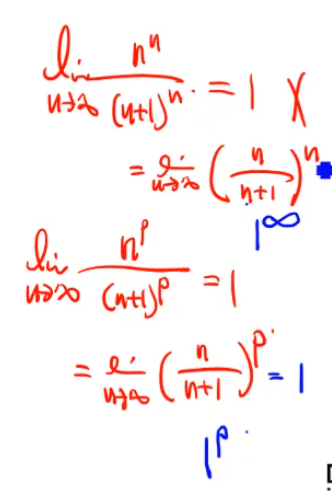 lim n→∞ n^n / (n+1)^n = 1 X
= lim n→∞ ( n / n+1 )^n
1^∞
lim n→∞ n^p / (n+1)^p = 1
= lim n→∞ ( n / n+1 )^p = 1
1^p